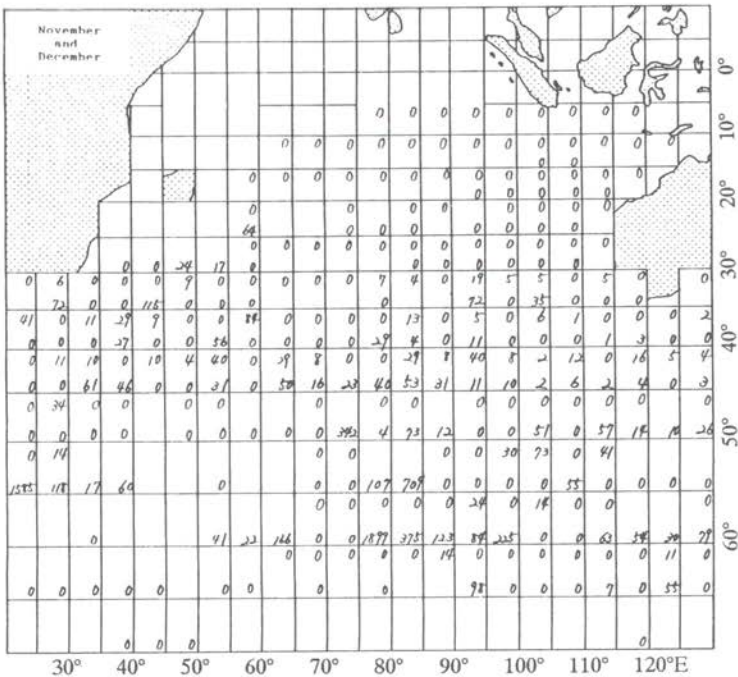 November
and
December
0°
0 0 0 0 0 0 0 0 0
10°
0 0 0 0 0 0 0 0 0 0 0 0 0
0 0
0 0 0 0 0 0 0 0 0 0 0 0 0
0 0 0 0 0
20°
0 0 0 0 0 0 0 0
64 0 0 0 0 0 0 0 0
0 0 0 0 0 0 0 0 0 0 0 0
0 0 24 17 0 0 0 0 0 0 0
30°
0 6 0 0 0 9 0 0 0 0 0 7 4 0 19 5 5 0 5 0 0
72 0 0 115 0 0 0 0 72 0 35 0 0 0
41 0 11 29 9 0 0 84 0 0 0 0 13 0 5 0 6 1 0 0 0 2
0 0 0 27 0 0 56 0 0 0 0 29 4 0 11 0 0 0 1 3 0 0
40°
0 11 10 0 10 4 40 0 29 8 0 0 29 8 40 8 2 12 0 16 5 4
0 0 61 46 0 0 31 0 50 16 23 40 53 31 11 10 2 6 2 4 0 3
0 34 0 0 0 0 0 0 0 0 0 0 0 0 0 0 0 0
0 0 0 0 0 0 0 0 0 342 4 73 12 0 0 51 0 57 14 10 26
50°
0 14 0 0 0 0 30 73 0 41
1585 118 17 60 0 0 0 107 709 0 0 0 0 55 0 0 0 0
0 0 0 0 0 24 0 14 0 0 0
0 41 22 166 0 0 1899 375 123 84 225 0 0 63 54 30 79
60°
0 0 0 0 0 14 11 0
0 0 0 0 0 0 0 0 98 0 0 0 7 0 55 0
0 0 0 0
30° 40° 50° 60° 70° 80° 90° 100° 110° 120°E